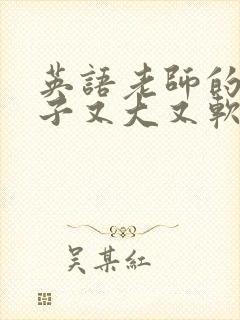 英語老師的
子又大又軟
吳某紅